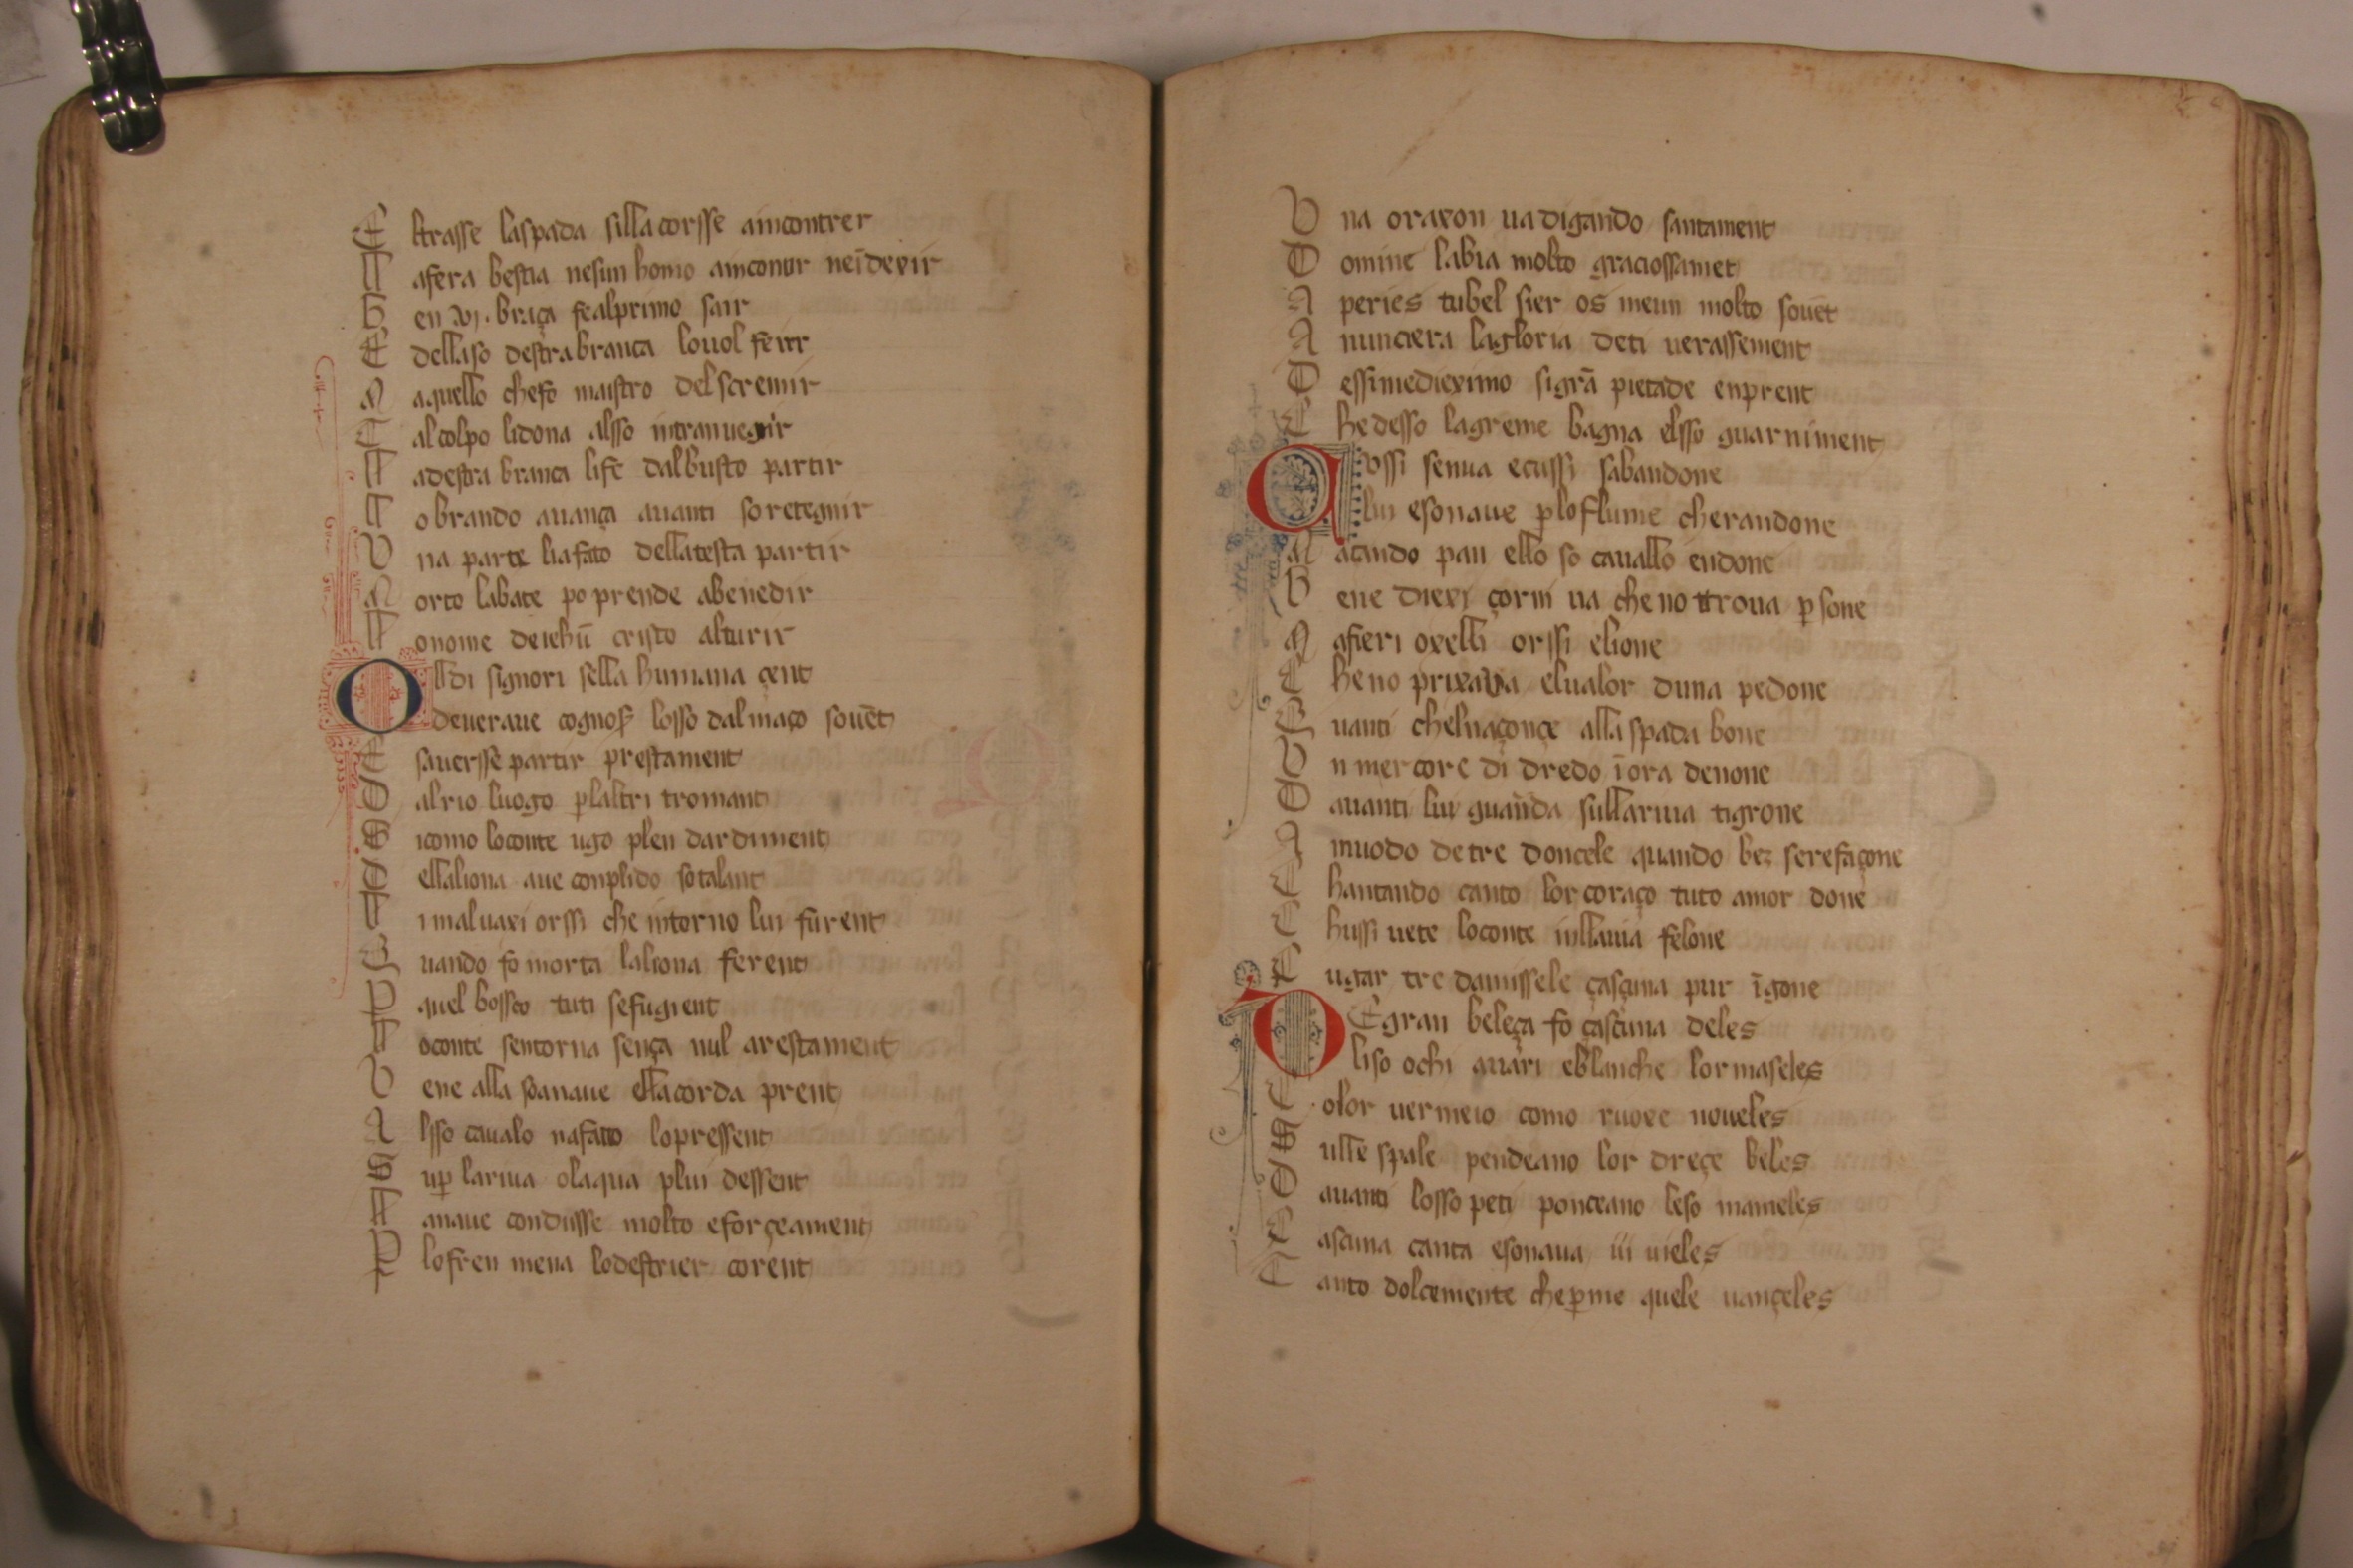 E ltrasse laspada silla corsse aincontrer
L afera bestia nesun homo aincontrr neīdexir
B en xvj. braça fe alprimo sair
E dellaso destra branca lo uol ferir
M aquello chefo maistro del scremir
T al colpo lidona alsso intranuegnir
L adestra branca life dal busto partir
L o brando auança auanti so retegnir
U na parte lia fato della testa partir
M orto labate po prende abenedir
L o nome de iehū cristo alturir
O lldi signori sella humana çent
deuerave cognos losso dalmaço souēt
E sauersse partir prestament
D al rio luogo p laltri tromant
S icomo lo conte ugo plen dardiment
D ella liona ave conplido so talant
L i maluaxi orssi che intorno lui furent
Q uando fo morta la liona ferent
P quel bossco tuti se fugient
L o conte sentorna sença nul arestament
V ene alla soa naue ella corda prent
A lsso caualo nafato lo pressent
S up lariua olaqua plui dessent
L a naue condusse molto eforçeament
P lo fren mena lo destrier corent
U na oraxon ua digando santament
D omine labia molto graciossamet
A peries tubel sier os meun molto souēt
A nunciera la gloria deti uerassement
D essimediexmo si grā pietade enprent
C he desso lagreme bagna elsso guarniment
C ossi senua ecussi sabandone
lui esonaue p lo flume che randone
M açando pan ello so cauallo endone
B ene diexj çorni ua che no trroua psone
M a fieri oxelli orssi elione
C he no prixava eluallor duna pedone
Q uanti chelu açonçe alla spada bone
U n mercore di dredo ī ora denone
D auanti lui guarda sullariua tigrone
A muodo de tre doncele quando bez serefaçone
C hantando canto lor coraço tuto amor done
C hussi uete lo conte inllauia felone
C ugar tre damissele çascuna pur ī gone
D E gran beleça fo çascuna deles
li so ochi auari e blanche lor maseles
C olor uermeio como ruoxe noueles
S ulle spale pendeano lor dreçe beles
D auanti losso peti ponceano leso mameles
C ascuna canta esonaua iii uieles
T anto dolcemente che pme quele uançeles